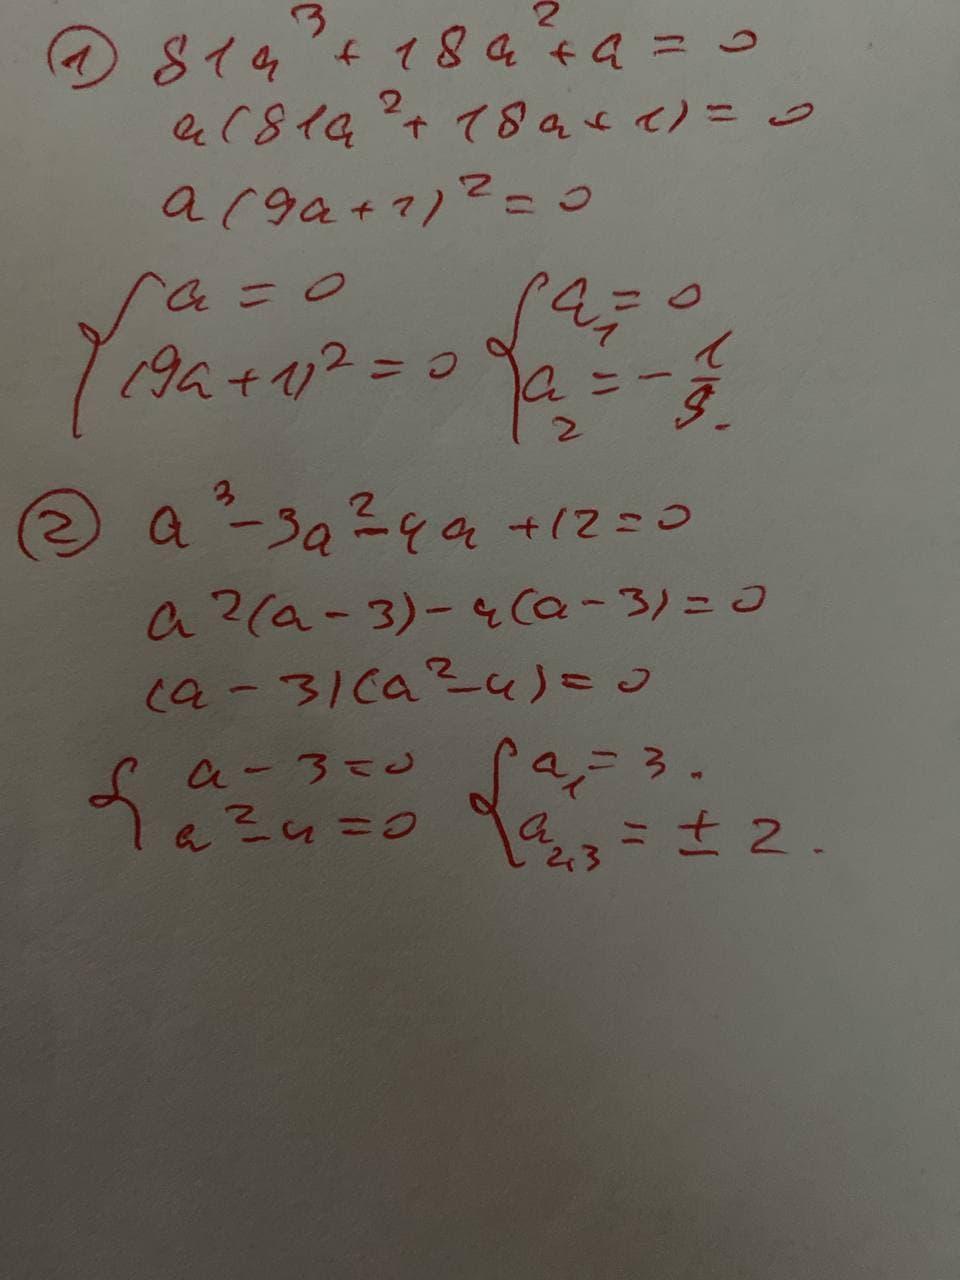 ① 81a³ + 18a² + a = 0
a(81a² + 18a + 1) = 0
a(9a + 1)² = 0
{ a = 0 { a₁ = 0
(9a + 1)² = 0 a₂ = -1/9.
② a³ - 3a² - 4a + 12 = 0
a²(a - 3) - 4(a - 3) = 0
(a - 3)(a² - 4) = 0
{ a - 3 = 0 { a₁ = 3.
a² - 4 = 0 a₂,₃ = ± 2.